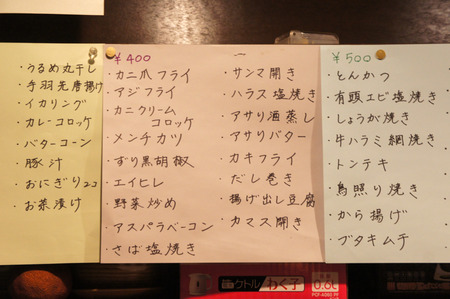 ・うるめ丸干し
・手羽先唐揚げ
・イカリング
・カレーコロッケ
・バターコーン
・豚汁
・おにぎり2コ
・お茶漬け
¥400
・カニ爪フライ
・アジフライ
・カニクリーム
コロッケ
・メンチカツ
・ずり黒胡椒
・エイヒレ
・野菜炒め
・アスパラベーコン
・さば塩焼き
・サンマ開き
・ハラス塩焼き
・アサリ酒蒸し
・アサリバター
・カキフライ
・だし巻き
・揚げ出し豆腐
・カマス開き
¥500
・とんかつ
・有頭エビ塩焼き
・しょうが焼き
・牛ハラミ網焼き
・トンテキ
・鳥照り焼き
・から揚げ
・ブタキムチ
クトル わく子
0.6L